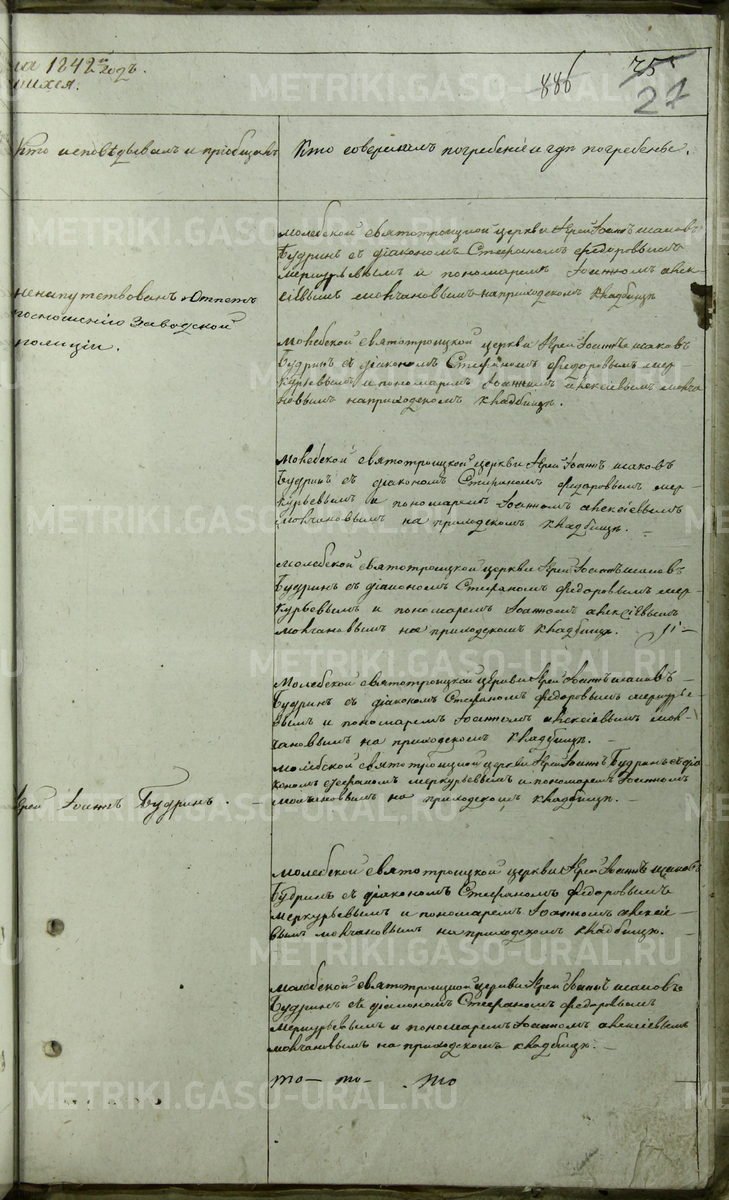 на 1842й годъ.
шихся.
886
75
27
Кто исповѣдывалъ и пріобщалъ
Кто совершилъ погребеніе и гдѣ погребены.
Молебской святотроицкой церкви Іерей Іоаннъ Исаковъ
Будринъ съ діакономъ Стефаномъ Федоровымъ
Меркурьевымъ и пономаремъ Іоанномъ Алек-
сіевымъ Молчановымъ на приходскомъ кладбищѣ
ненапутствованъ Отпетъ
поотношенію Заводской
полиціи.
Молебской святотроицкой церкви Іерей Іоаннъ Исаковъ
Будринъ съ діакономъ Стефаномъ Федоровымъ Мер
курьевымъ и пономаремъ Іоанномъ Алексіевымъ Молча
новымъ на приходскомъ кладбищѣ.
Молебской святотроицкой церкви Іерей Іоаннъ Исаковъ
Будринъ съ діакономъ Стефаномъ Федоровымъ Мер-
курьевымъ и пономаремъ Іоанномъ Алексіевымъ
Молчановымъ на приходскомъ кладбищѣ. –
Молебской святотроицкой церкви Іерей Іоаннъ Исаковъ
Будринъ съ діакономъ Стефаномъ Федоровымъ Мер-
курьевымъ и пономаремъ Іоанномъ Алексіевымъ
Молчановымъ на приходскомъ кладбищѣ.
Молебской святотроицкой церкви Іерей Іоаннъ Исаковъ –
Будринъ съ діакономъ Стефаномъ Федоровымъ Меркурье-
вымъ и пономаремъ Іоанномъ Алексіевымъ Мол-
чановымъ на приходскомъ кладбищѣ.
Іерей Іоаннъ Будринъ. –
Молебской святотроицкой церкви Іерей Іоаннъ Будринъ съ діа
кономъ Стефаномъ Меркурьевымъ и пономаремъ Іоанномъ
Молчановымъ на приходскомъ кладбищѣ. –
Молебской святотроицкой церкви Іерей Іоаннъ Исаковъ
Будринъ съ діакономъ Стефаномъ Федоровымъ
Меркурьевымъ и пономаремъ Іоанномъ Алексіе –
вымъ Молчановымъ на приходскомъ кладбищѣ.
Молебской святотроицкой церкви Іерей Іоаннъ Исаковъ
Будринъ съ діакономъ Стефаномъ Федоровымъ
Меркурьевымъ и пономаремъ Іоанномъ Алексіевымъ
Молчановымъ на приходскомъ кладбищѣ. –
то – то – то
METRIKI.GASO-URAL.RU